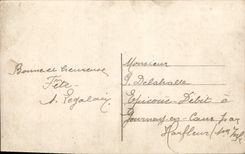 Bonne et heureuse
Fête
Monsieur
Delahalle
Epicerie-Débit à
Gournay en Caux par
Harfleur